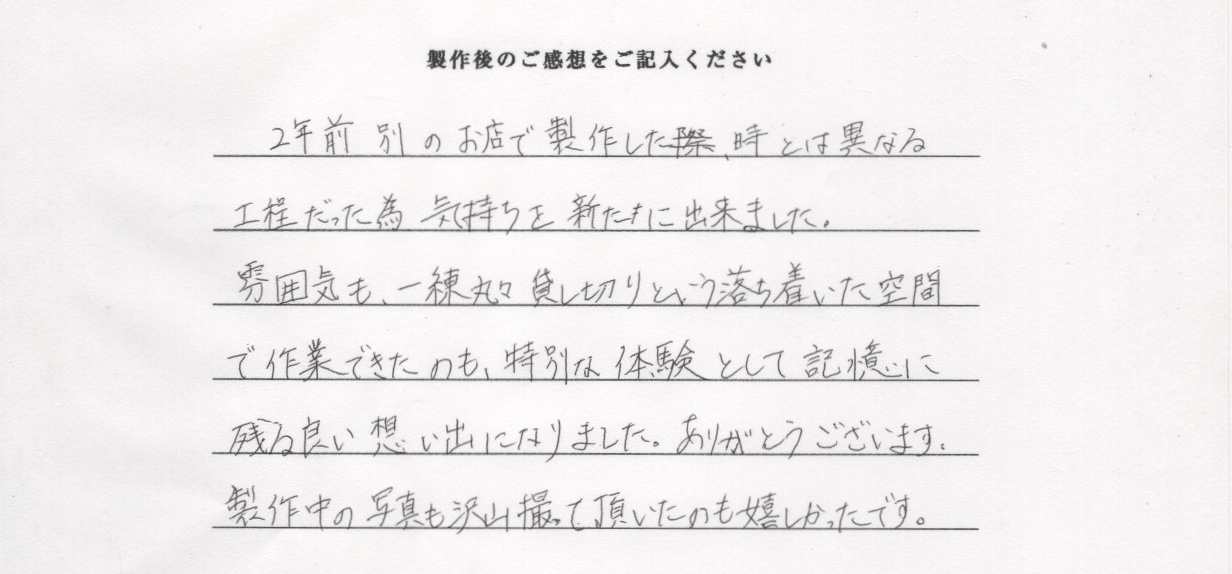 製作後のご感想をご記入ください
2年前 別のお店で製作した際、時とは異なる
工程だった為 気持ちを新たに出来ました。
雰囲気も、一棟丸々貸し切りという落ち着いた空間
で作業できたのも、特別な体験として記憶に
残る良い想い出になりました。ありがとうございます。
製作中の写真も沢山撮って頂いたのも嬉しかったです。